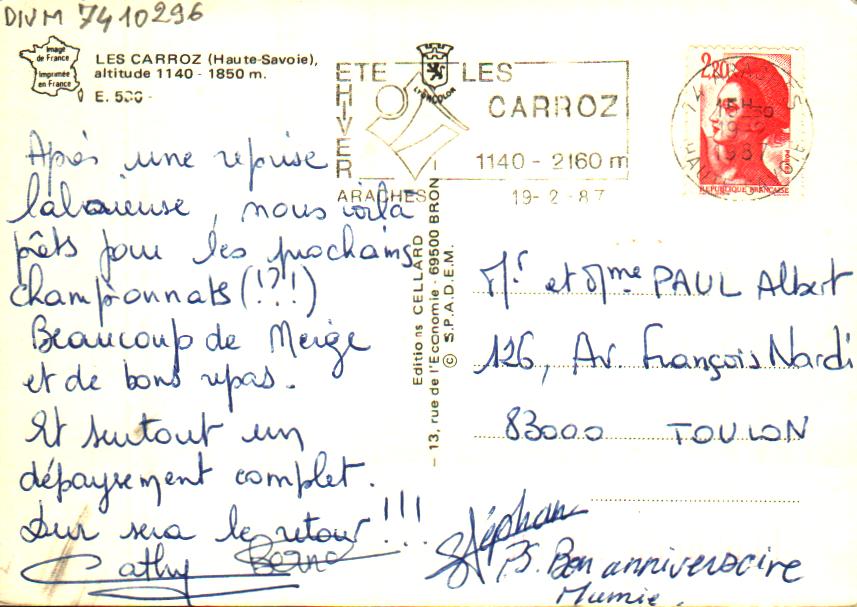 DIVM 7410296
Image
de France
Imprimée
en France
LES CARROZ (Haute-Savoie),
altitude 1140 - 1850 m.
E. 530 -
Après une reprise
laborieuse, nous voilà
prêts pour les prochains
championnats (!?!)
Beaucoup de Neige
et de bons repas.
Et surtout un
dépaysement complet.
Dur sera le retour !!!
Cathy Bernard
Stéphan
PS. Bon anniversaire
Mumie.
ETE
HIVER
LES
CARROZ
1140 - 2160 m
ARACHES
19-2-87
LYONCOLOR
Editions CELLARD
- 13, rue de l'Economie - 69500 BRON -
© S.P.A.D.E.M.
2,20
REPUBLIQUE FRANÇAISE
15H
19-2
1987
Mr et Mme PAUL Albert
126, Av. François Nardi
83000 TOULON